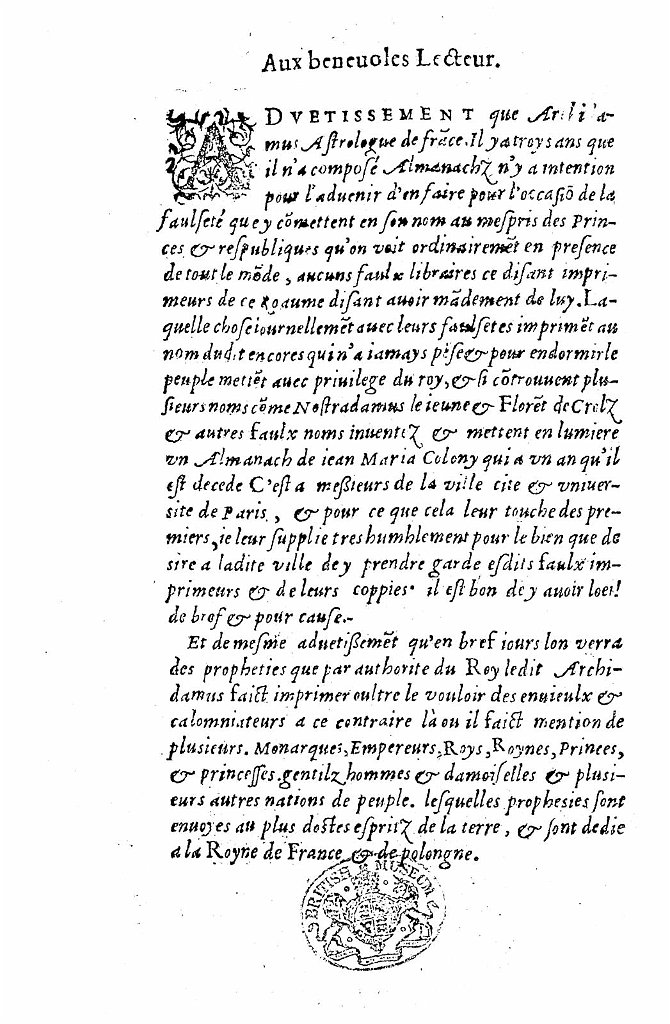 Aux beneuoles Lecteur.
ADVETISSEMENT que Archi'a-
mus Astrologue de frāce. Il y a troys ans que
il n'a composé Almanachz n'y a intention
pour l'aduenir d'en faire pour l'occasiō de la
faulseté que y cōmettent en son nom au mespris des Prin-
ces & respubliques qu'on voit ordinairemēt en presence
de tout le mōde, aucuns faulx libraires ce disant impri-
meurs de ce Roaume disant auoir mādement de luy. La-
quelle chose iournellemēt auec leurs faulsetes imprimēt au
nom dudit encores qui n'a iamays & pour endormir le
peuple mettēt auec priuilege du roy, & si cōtrouuent plu-
sieurs noms cōme Nostradamus le ieune & Florēt de Crolz
& autres faulx noms inuentez & mettent en lumiere
vn Almanach de iean Maria Colony qui a vn an qu'il
est decede C'est a meßieurs de la ville cite & vniuer-
site de Paris, & pour ce que cela leur touche des pre-
miers, ie leur supplie tres humblement pour le bien que de
sire a ladite ville de y prendre garde esdits faulx im-
primeurs & de leurs coppies· il est bon de y auoir loeil
de bref & pour cause.-
Et de mesme aduetißemēt qu'en bref iours lon verra
des propheties que par authorite du Roy ledit Archi-
damus faict imprimer oultre le vouloir des enuieulx &
calomniateurs a ce contraire là ou il faict mention de
plusieurs. Monarques, Empereurs, Roys, Roynes, Princes,
& princesses, gentilz hommes & damoiselles & plusi-
eurs autres nations de peuple. lesquelles prophesies sont
enuoyes au plus doctes espritz de la terre, & sont dedie
a la Royne de France & de polongne.
BRITISH MUSEUM